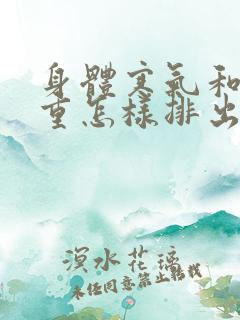 身體寒氣和
重怎樣排出
溟水花璃
未经同意禁止转载